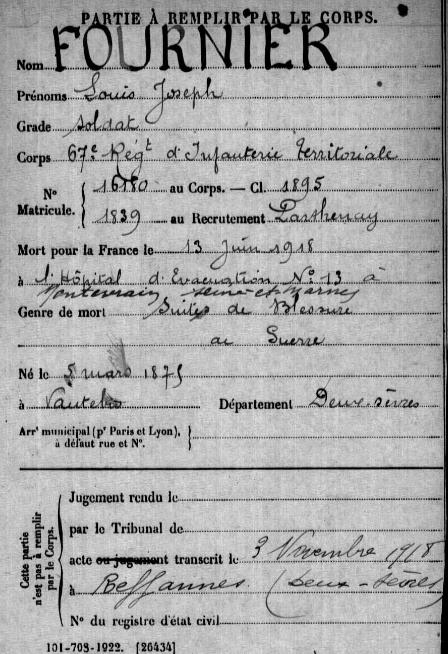 PARTIE À REMPLIR PAR LE CORPS.
Nom FOURNIER
Prénoms Louis Joseph
Grade soldat
Corps 67e Régt d'Infanterie territoriale
No Matricule. { 16180 au Corps. — Cl. 1895
1839 au Recrutement Parthenay
Mort pour la France le 13 Juin 1918
à l'Hôpital d'Evacuation No 13 à
Seine-et-Marne
Genre de mort Suites de Blessure
de Guerre
Né le 5 mars 1875
à Département Deux-sèvres
Arrt municipal (pr Paris et Lyon), à défaut rue et No. {
Cette partie n'est pas à remplir par le Corps.
Jugement rendu le
par le Tribunal de
acte ou jugement transcrit le 3 Novembre 1918
à Beffannes (Deux-Sèvres
No du registre d'état civil
101-708-1922. [26434]